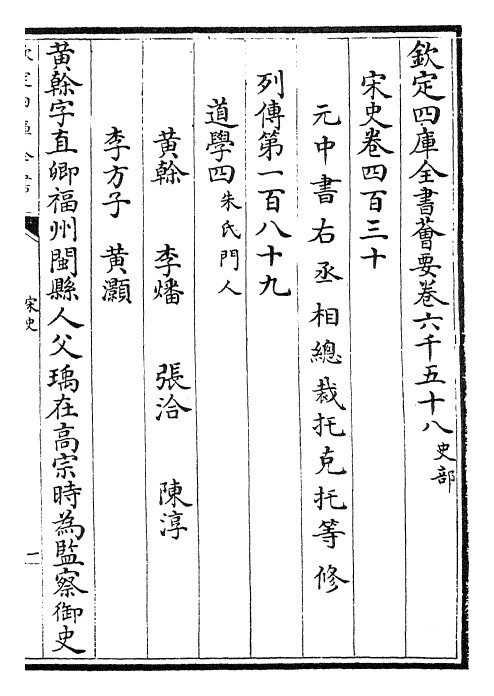 欽定四庫全書薈要卷六千五十八史部
宋史卷四百三十
元中書右丞相總裁托克托等修
列傳第一百八十九
道學四朱氏門人
黃榦 李燔 張洽 陳淳
李方子 黃灝
黃榦字直卿福州閩縣人父瑀在高宗時為監察御史
宋史
一